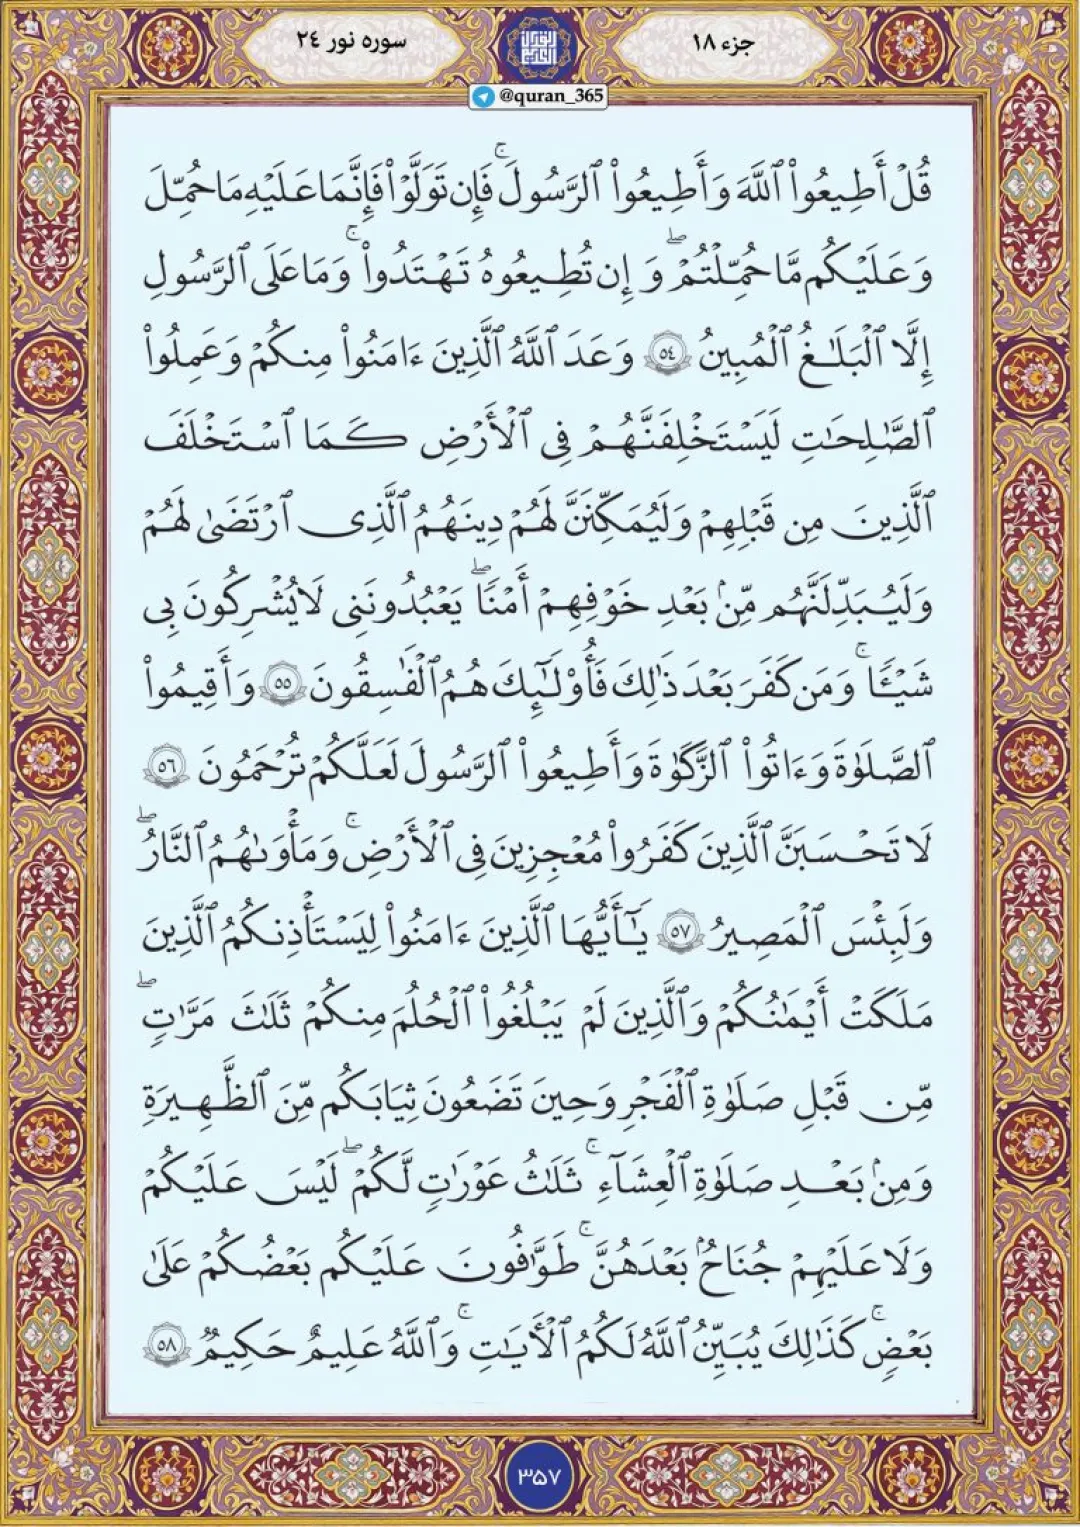 جزء ۱۸
سوره نور ۲۴
@quran_365
قُلْ أَطِيعُواْ ٱللَّهَ وَأَطِيعُواْ ٱلرَّسُولَۚ فَإِن تَوَلَّوْاْ فَإِنَّمَا عَلَيْهِ مَا حُمِّلَ
وَعَلَيْكُم مَّا حُمِّلْتُمْۖ وَإِن تُطِيعُوهُ تَهْتَدُواْۚ وَمَا عَلَى ٱلرَّسُولِ
إِلَّا ٱلْبَلَٰغُ ٱلْمُبِينُ ٥٤ وَعَدَ ٱللَّهُ ٱلَّذِينَ ءَامَنُواْ مِنكُمْ وَعَمِلُواْ
ٱلصَّٰلِحَٰتِ لَيَسْتَخْلِفَنَّهُمْ فِى ٱلْأَرْضِ كَمَا ٱسْتَخْلَفَ
ٱلَّذِينَ مِن قَبْلِهِمْ وَلَيُمَكِّنَنَّ لَهُمْ دِينَهُمُ ٱلَّذِى ٱرْتَضَىٰ لَهُمْ
وَلَيُبَدِّلَنَّهُم مِّنۢ بَعْدِ خَوْفِهِمْ أَمْنًاۖ يَعْبُدُونَنِى لَا يُشْرِكُونَ بِى
شَيْـًٔاۚ وَمَن كَفَرَ بَعْدَ ذَٰلِكَ فَأُوْلَٰٓئِكَ هُمُ ٱلْفَٰسِقُونَ ٥٥ وَأَقِيمُواْ
ٱلصَّلَوٰةَ وَءَاتُواْ ٱلزَّكَوٰةَ وَأَطِيعُواْ ٱلرَّسُولَ لَعَلَّكُمْ تُرْحَمُونَ ٥٦
لَا تَحْسَبَنَّ ٱلَّذِينَ كَفَرُواْ مُعْجِزِينَ فِى ٱلْأَرْضِۚ وَمَأْوَىٰهُمُ ٱلنَّارُۖ
وَلَبِئْسَ ٱلْمَصِيرُ ٥٧ يَٰٓأَيُّهَا ٱلَّذِينَ ءَامَنُواْ لِيَسْتَـْٔذِنكُمُ ٱلَّذِينَ
مَلَكَتْ أَيْمَٰنُكُمْ وَٱلَّذِينَ لَمْ يَبْلُغُواْ ٱلْحُلُمَ مِنكُمْ ثَلَٰثَ مَرَّٰتٍۖ
مِّن قَبْلِ صَلَوٰةِ ٱلْفَجْرِ وَحِينَ تَضَعُونَ ثِيَابَكُم مِّنَ ٱلظَّهِيرَةِ
وَمِنۢ بَعْدِ صَلَوٰةِ ٱلْعِشَآءِۚ ثَلَٰثُ عَوْرَٰتٍ لَّكُمْۖ لَيْسَ عَلَيْكُمْ
وَلَا عَلَيْهِمْ جُنَاحٌۢ بَعْدَهُنَّۚ طَوَّٰفُونَ عَلَيْكُم بَعْضُكُمْ عَلَىٰ
بَعْضٍۚ كَذَٰلِكَ يُبَيِّنُ ٱللَّهُ لَكُمُ ٱلْأٓيَٰتِۚ وَٱللَّهُ عَلِيمٌ حَكِيمٌ ٥٨
۳۵۷